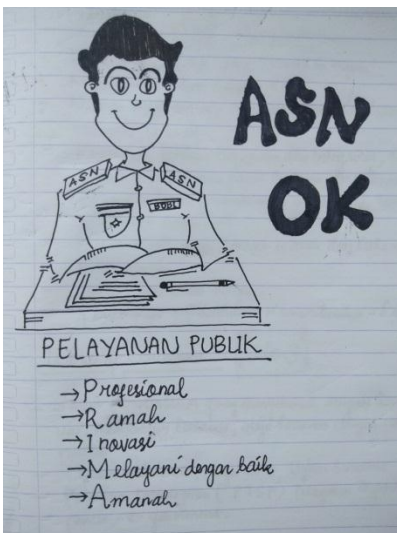 ASN
OK
ASN
ASN
BUDI
PELAYANAN PUBLIK
→Profesional
→Ramah
→Inovasi
→Melayani dengan baik
→Amanah